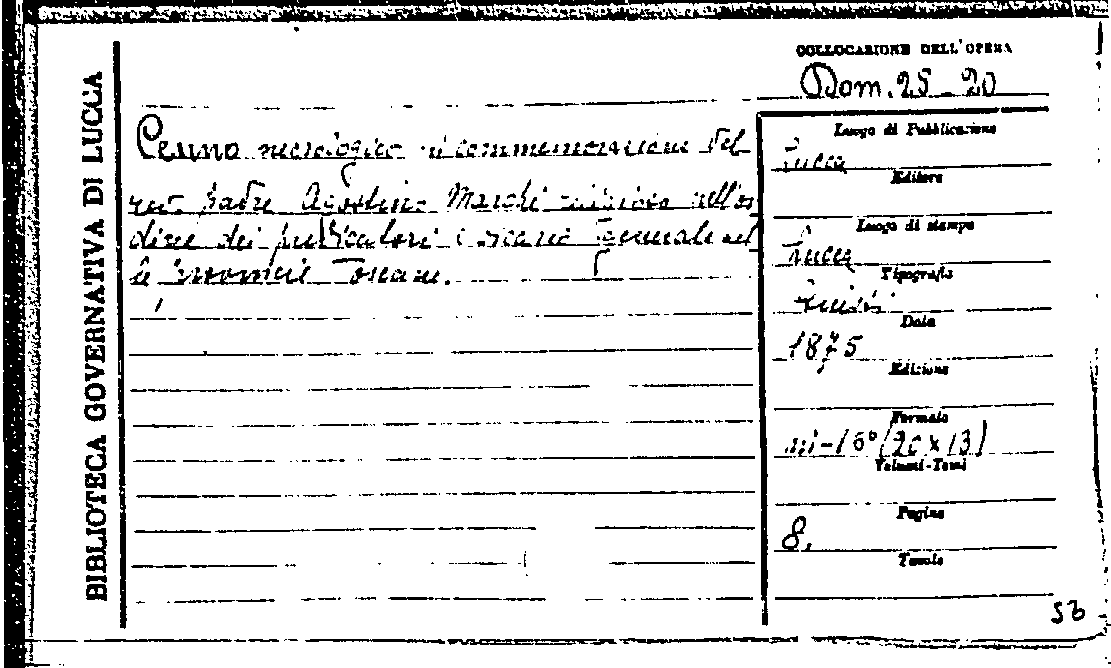 BIBLIOTECA GOVERNATIVA DI LUCCA
COLLOCAZIONE DELL'OPERA
Dom. 25 - 20
Cenno necrologico in commemorazione del
rev. padre Agostino Marchi religioso nell'or
dine dei predicatori e vicario Generale nel
la provincia Toscana.
Luogo di Pubblicazione
Lucca
Editore
Luogo di stampa
Lucca
Tipografia
Data
1875
Edizione
Formato
in-16° (20 x 13)
Volumi-Tomi
Pagine
8.
Tavole
53